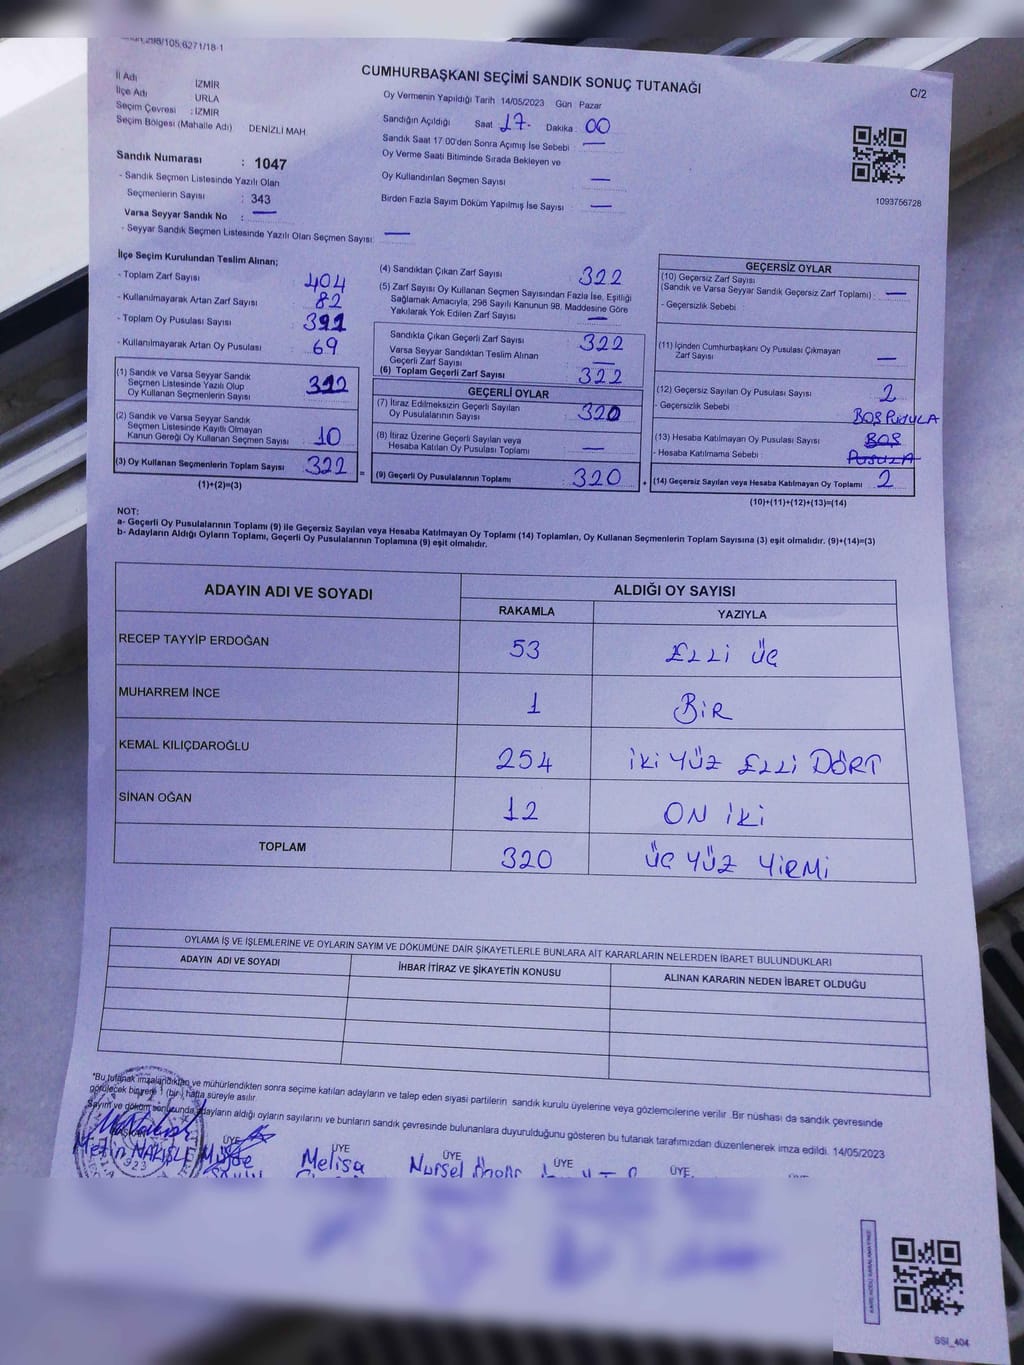 CUMHURBAŞKANI SEÇİMİ SANDIK SONUÇ TUTANAĞI
C/2
İl Adı İZMİR
İlçe Adı URLA
Seçim Çevresi : İZMİR
Seçim Bölgesi (Mahalle Adı) DENİZLİ MAH.
Sandık Numarası : 1047
- Sandık Seçmen Listesinde Yazılı Olan
Seçmenlerin Sayısı : 343
Varsa Seyyar Sandık No : —
- Seyyar Sandık Seçmen Listesinde Yazılı Olan Seçmen Sayısı: —
Oy Vermenin Yapıldığı Tarih 14/05/2023 Gün Pazar
Sandığın Açıldığı Saat : 17. Dakika : 00
Sandık Saat 17.00'den Sonra Açımış İse Sebebi —
Oy Verme Saati Bitiminde Sırada Bekleyen ve
Oy Kullandırılan Seçmen Sayısı —
Birden Fazla Sayım Döküm Yapılmış İse Sayısı —
1093756728
İlçe Seçim Kurulundan Teslim Alınan;
- Toplam Zarf Sayısı 404
- Kullanılmayarak Artan Zarf Sayısı 82
- Toplam Oy Pusulası Sayısı 391
- Kullanılmayarak Artan Oy Pusulası 69
(1) Sandık ve Varsa Seyyar Sandık
Seçmen Listesinde Yazılı Olup
Oy Kullanan Seçmenlerin Sayısı 312
(2) Sandık ve Varsa Seyyar Sandık
Seçmen Listesinde Kayıtlı Olmayan
Kanun Gereği Oy Kullanan Seçmen Sayısı 10
(3) Oy Kullanan Seçmenlerin Toplam Sayısı 322
(1)+(2)=(3)
=
(4) Sandıktan Çıkan Zarf Sayısı 322
(5) Zarf Sayısı Oy Kullanan Seçmen Sayısından Fazla İse, Eşitliği
Sağlamak Amacıyla; 298 Sayılı Kanunun 98. Maddesine Göre
Yakılarak Yok Edilen Zarf Sayısı —
Sandıkta Çıkan Geçerli Zarf Sayısı 322
Varsa Seyyar Sandıktan Teslim Alınan
Geçerli Zarf Sayısı —
(6) Toplam Geçerli Zarf Sayısı 322
GEÇERLİ OYLAR
(7) İtiraz Edilmeksizin Geçerli Sayılan
Oy Pusulalarının Sayısı 320
(8) İtiraz Üzerine Geçerli Sayılan veya
Hesaba Katılan Oy Pusulası Toplamı —
(9) Geçerli Oy Pusulalarının Toplamı 320
+
GEÇERSİZ OYLAR
(10) Geçersiz Zarf Sayısı
(Sandık ve Varsa Seyyar Sandık Geçersiz Zarf Toplamı) : —
- Geçersizlik Sebebi
(11) İçinden Cumhurbaşkanı Oy Pusulası Çıkmayan
Zarf Sayısı —
(12) Geçersiz Sayılan Oy Pusulası Sayısı 2
- Geçersizlik Sebebi BOŞ PUSULA
(13) Hesaba Katılmayan Oy Pusulası Sayısı BOŞ
- Hesaba Katılmama Sebebi PUSULA
(14) Geçersiz Sayılan veya Hesaba Katılmayan Oy Toplamı 2
(10)+(11)+(12)+(13)=(14)
NOT:
a- Geçerli Oy Pusulalarının Toplamı (9) ile Geçersiz Sayılan veya Hesaba Katılmayan Oy Toplamı (14) Toplamları, Oy Kullanan Seçmenlerin Toplam Sayısına (3) eşit olmalıdır. (9)+(14)=(3)
b- Adayların Aldığı Oyların Toplamı, Geçerli Oy Pusulalarının Toplamına (9) eşit olmalıdır.
ADAYIN ADI VE SOYADI ALDIĞI OY SAYISI
RAKAMLA YAZIYLA
RECEP TAYYİP ERDOĞAN 53 ELLİ ÜÇ
MUHARREM İNCE 1 BİR
KEMAL KILIÇDAROĞLU 254 İKİ YÜZ ELLİ DÖRT
SİNAN OĞAN 12 ON İKİ
TOPLAM 320 ÜÇ YÜZ YİRMİ
OYLAMA İŞ VE İŞLEMLERİNE VE OYLARIN SAYIM VE DÖKÜMÜNE DAİR ŞİKAYETLERLE BUNLARA AİT KARARLARIN NELERDEN İBARET BULUNDUKLARI
ADAYIN ADI VE SOYADI İHBAR İTİRAZ VE ŞİKAYETİN KONUSU ALINAN KARARIN NEDEN İBARET OLDUĞU
*Bu tutanak imzalandıktan ve mühürlendikten sonra seçime katılan adayların ve talep eden siyasi partilerin sandık kurulu üyelerine veya gözlemcilerine verilir. Bir nüshası da sandık çevresinde
görülecek bir yere 1 (bir) hafta süreyle asılır.
Sayım ve döküm sonucunda adayların aldığı oyların sayılarını ve bunların sandık çevresinde bulunanlara duyurulduğunu gösteren bu tutanak tarafımızdan düzenlenerek imza edildi. 14/05/2023
ÜYE ÜYE ÜYE ÜYE ÜYE
Metin Müjde Melisa Nursel
923
SSİ_404